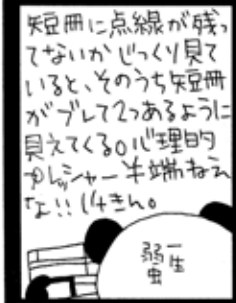 短冊に点線が残っ
てないかじっくり見て
いると、そのうち短冊
がブレて2つあるように
見えてくる。心理的
プレッシャー半端ねえ
な!!
一生
弱虫